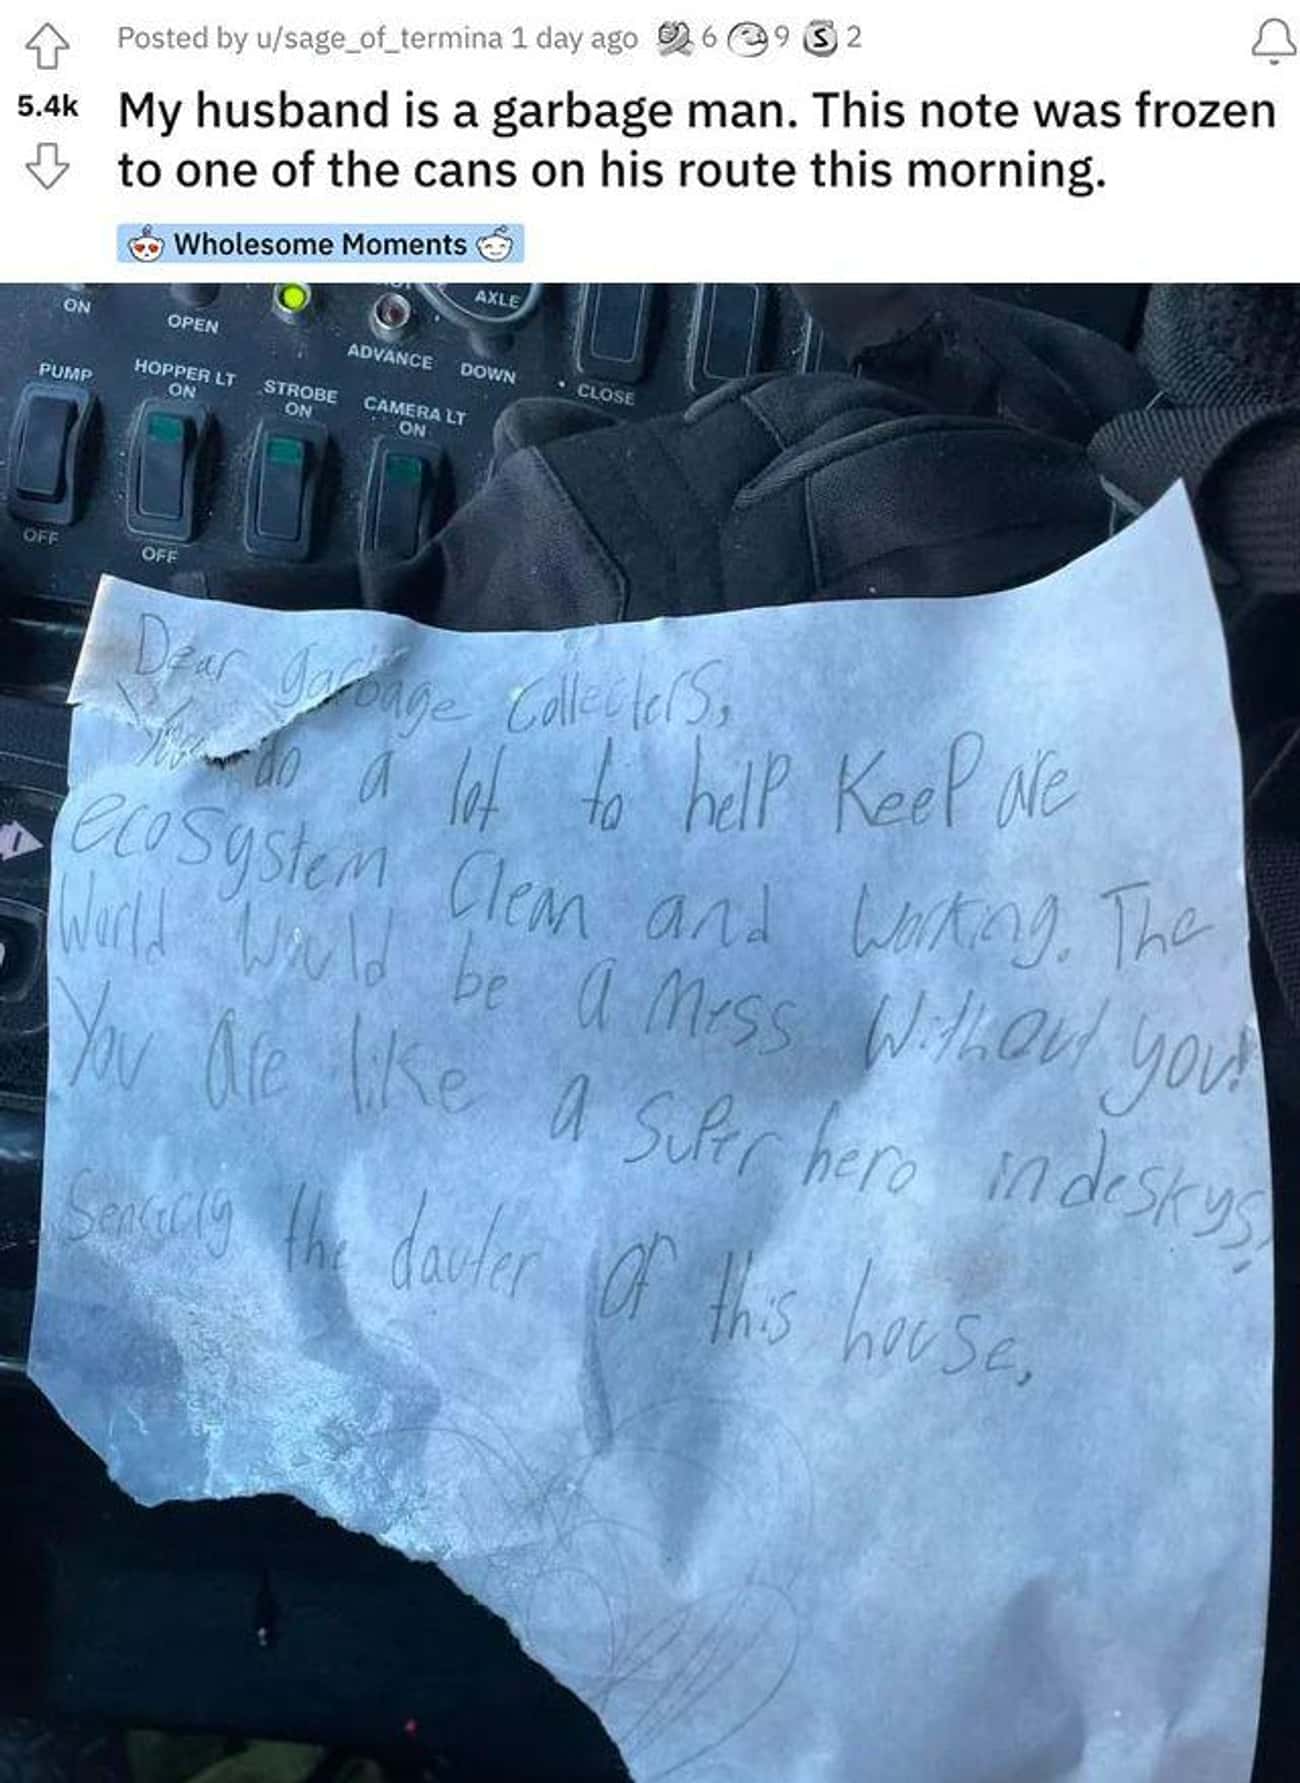 Posted by u/sage_of_termina 1 day ago 6 9 S 2
5.4k
My husband is a garbage man. This note was frozen
to one of the cans on his route this morning.
Wholesome Moments
ON
OPEN
AXLE
ADVANCE
DOWN
CLOSE
PUMP
HOPPER LT
ON
STROBE
ON
CAMERA LT
ON
OFF
OFF
Dear garbage Collecters,
You do a lot to help keep are
ecosystem Clean and working. The
World Would be a mess Without you!
You are like a super hero in deskys,
the dauter of this house,